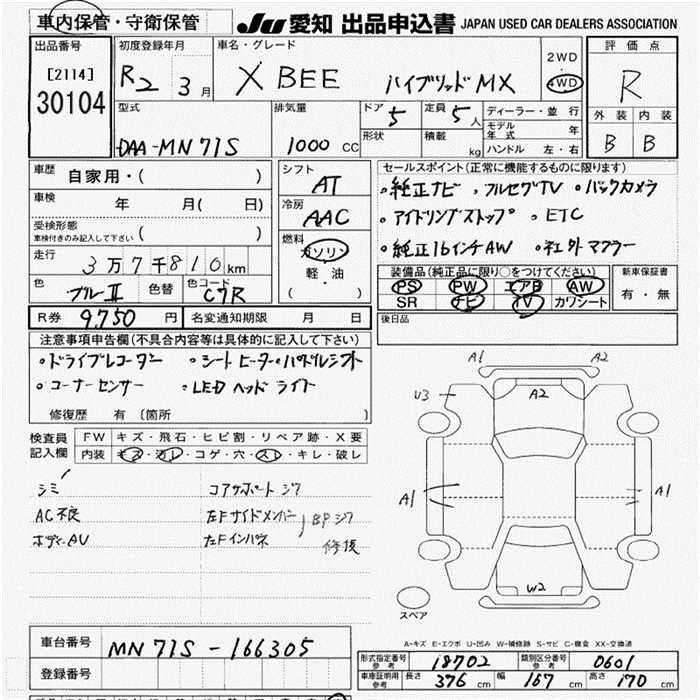 車内保管・守衛保管 JU 愛知 出品申込書 JAPAN USED CAR DEALERS ASSOCIATION
出品番号 初度登録年月 車名・グレード 2WD 評価点
[2114] R2 3月 X BEE ハイブリッドMX 4WD R
30104
型式 排気量 ドア 5 定員 5人 ディーラー・並行 外装 内装
DAA-MN71S 1000 CC 形状 積載 kg モデル年式 年 B B
ハンドル 左・右
車歴 自家用・( ) シフト AT セールスポイント(正常に機能するものに限ります)
車検 年 月( 日) 冷房 AAC ・純正ナビ ・フルセグTV ・バックカメラ
受検形態 ・アイドリングストップ ・ETC
車検付きのみ記入して下さい ( )
走行 3万7千810km 燃料 ガソリン ・純正16インチAW ・社外マフラー
軽・油
( )
装備品(純正品に限り○をつけてください) 新車保証書
色 ブルーII 色替 色コード C7R PS PW エアB AW 有・無
SR ナビ TV カワシート
R券 9,750円 名変通知期限 月 日 後日品
注意事項申告欄(不具合内容等は具体的に記入して下さい)
・ドライブレコーダー ・シートヒーター・パドルシフト
・コーナーセンサー ・LEDヘッドライト
修復歴 有 (箇所 )
A1 A2
U3 A2
検査員記入欄 FW キズ・飛石・ヒビ割・リペア跡・X要
内装 キズ・汚レ・コゲ・穴・スレ・キレ・破レ
シミ コアサポートシワ A1 A1
AC不良 左Fサイドメンバー
ボディAU 左Fインパネ BPシワ
修復
W2
スペア
A-キズ E-エクボ U-凹み W-補修跡 S-サビ C-腐食 XX-交換済
車台番号 MN71S-166305
形式指定番号 参考 18702 類別区分番号 参考 0601
登録番号
車庫証明用 参考 長さ 376cm 幅 167cm 高さ 170cm